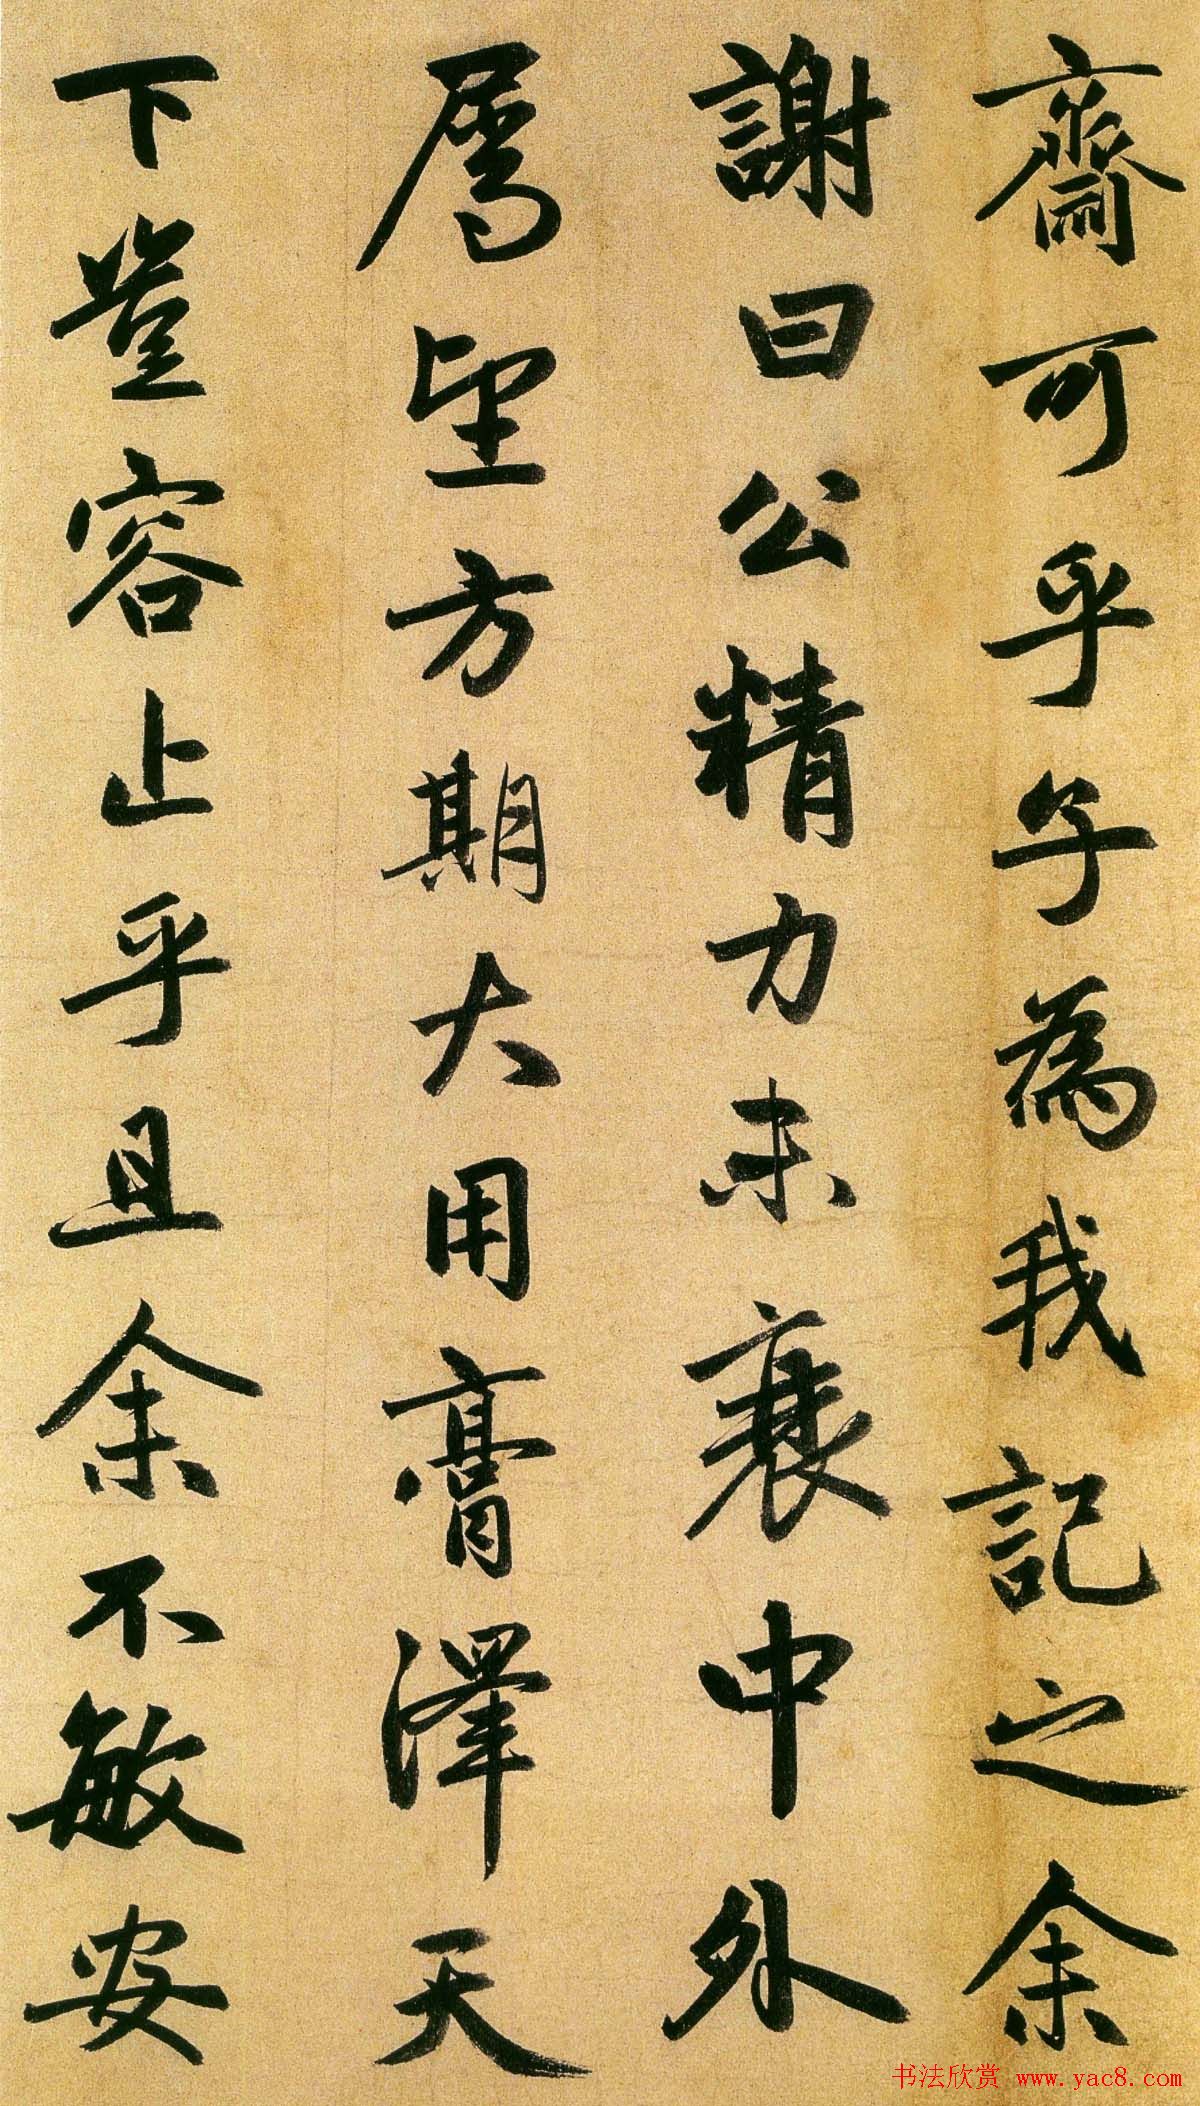 齋可乎子為我記之余
謝曰公精力未衰中外
属望方期大用膏澤天
下豈容止乎且余不敏安
书法欣赏 www.yac8.com